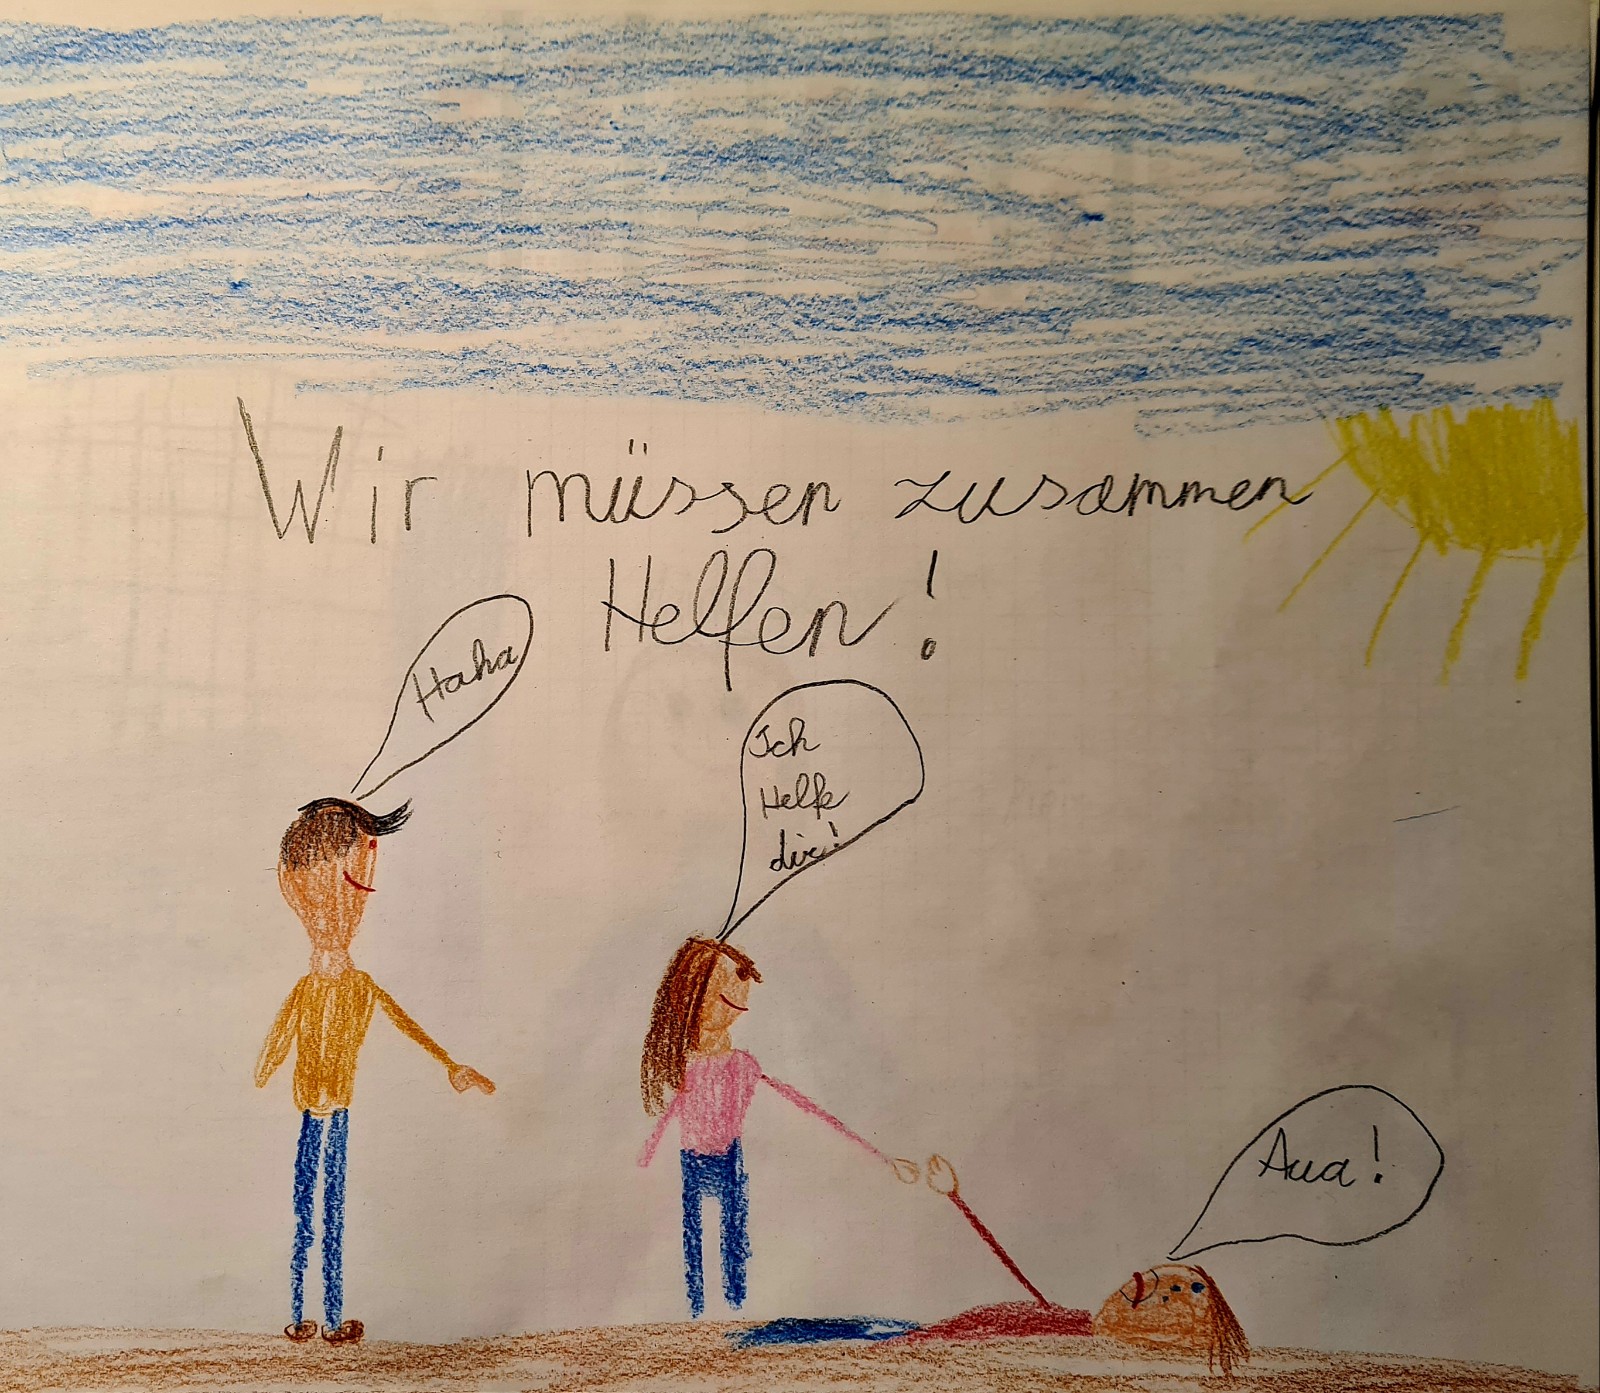 Wir müssen zusammen
Helfen!
Haha
Ich
Helfe
dir!
Aua!